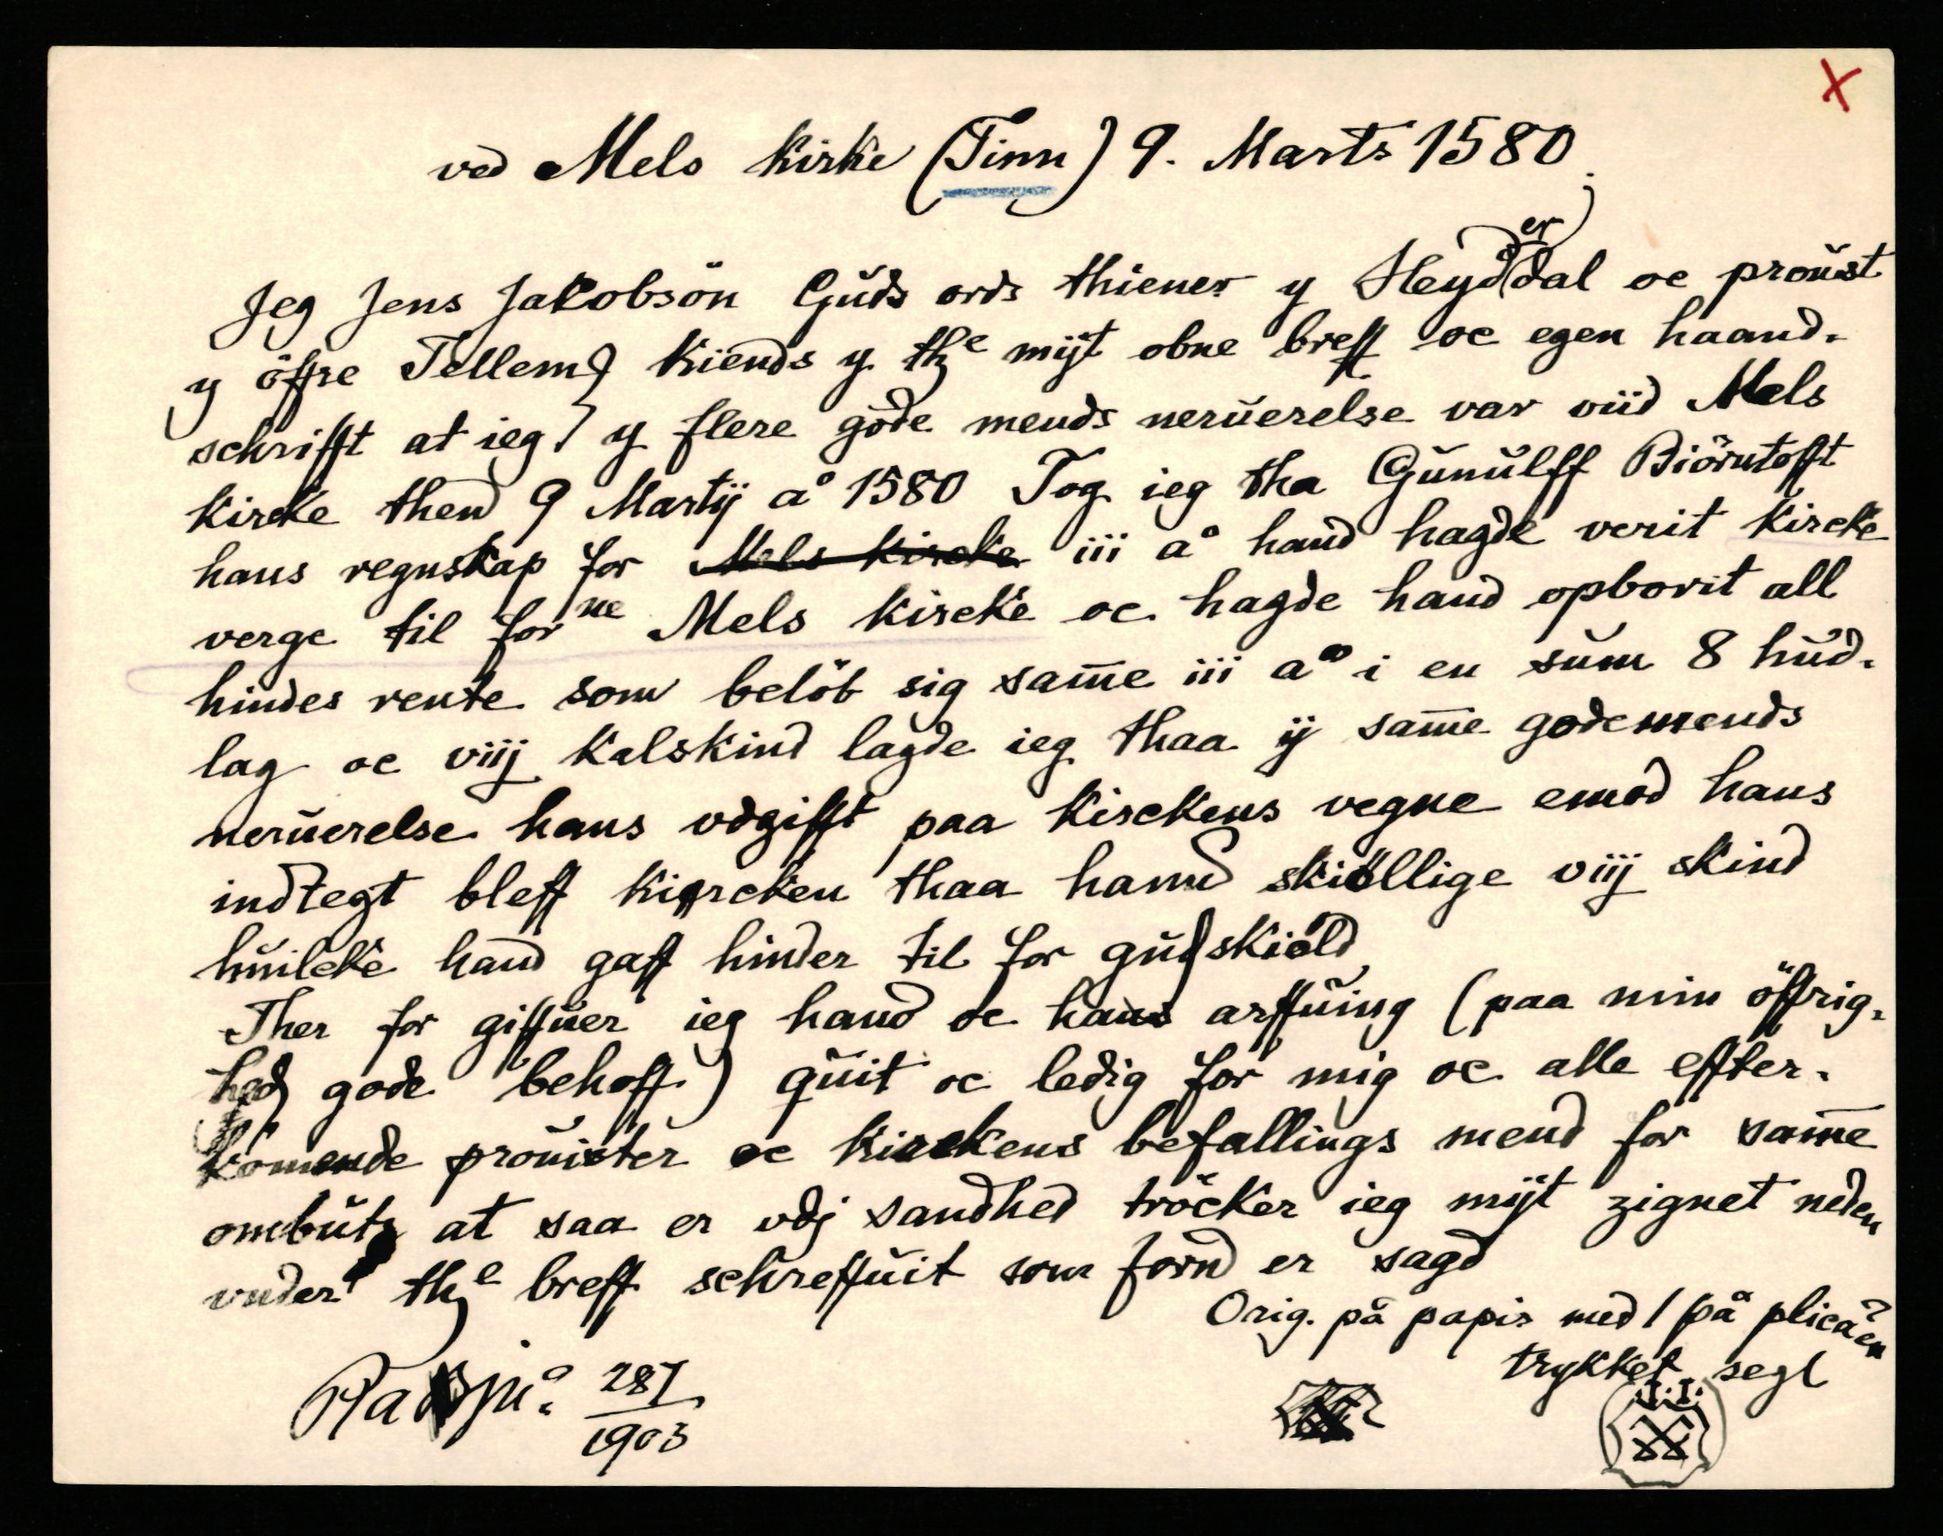 x
ved Mels kirke (Tinn) 9. Marts 1580.
er
Jeg Jens Jakobsön Guds ords thiener y Heyddal oc proŭst
y öffre Tellemꝭ kiends y thꝫᵉ mijt obne breff oc egen haand-
schrifft at ieg y flere gode mends neruerelse var viid Mels
kircke thend 9 Martij a° 1580 Tog ieg tha Gŭnŭlff Biörntofft
hans regnskap for ~~Mels kircke~~ iii a° hand hagde verit kircke
verge til forⁿᵉ Mels kircke oc hagde hand opborit all
hindes rente som belöb sig sam̅e iii a° i en sŭm 8 hŭd-
lag oc viij kalskind lagde ieg thaa ij sam̅e godemends
nerŭerelse hans vdgifft paa kirckens vegne emod hans
indtegt bleff kircken thaa hannd skiöllige viij skind
hŭilcke hand gaff hinder til for gŭdskiöld
Ther for giffŭer ieg hand oc hans arffŭing (paa min öffrig-
hedꝭ gode behoff) qŭit oc ledig for mig oc alle effter-
komende proŭister oc kirckens befallings mend for sam̅e
ombŭtꝭ at saa er vdj sandhed tröcker ieg mijt zignet neden
vnder thꝫᵉ breff schreffŭit som fornd er sagd
Orig. på papir med 1 på plicaen
trykket segl
J.J.
Ra 287/1903